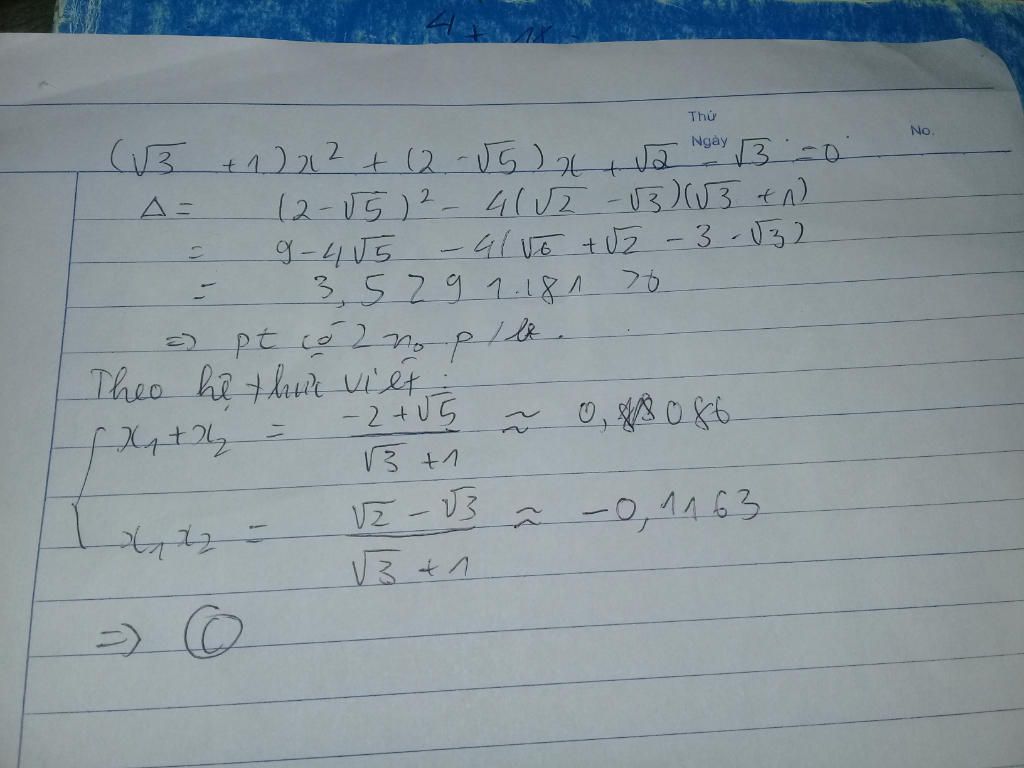 4 + 18
Thứ
Ngày
No.
(√3 + 1)x² + (2 - √5)x + √2 - √3 = 0
Δ = (2 - √5)² - 4(√2 - √3)(√3 + 1)
= 9 - 4√5 - 4(√6 + √2 - 3 - √3)
= 3,5291.181 > 0
=> pt có 2 no p/b
Theo hệ thức viết:
x₁ + x₂ = (-2 + √5)/(√3 + 1) ≈ 0,086
x₁x₂ = (√2 - √3)/(√3 + 1) ≈ -0,1163
=> C